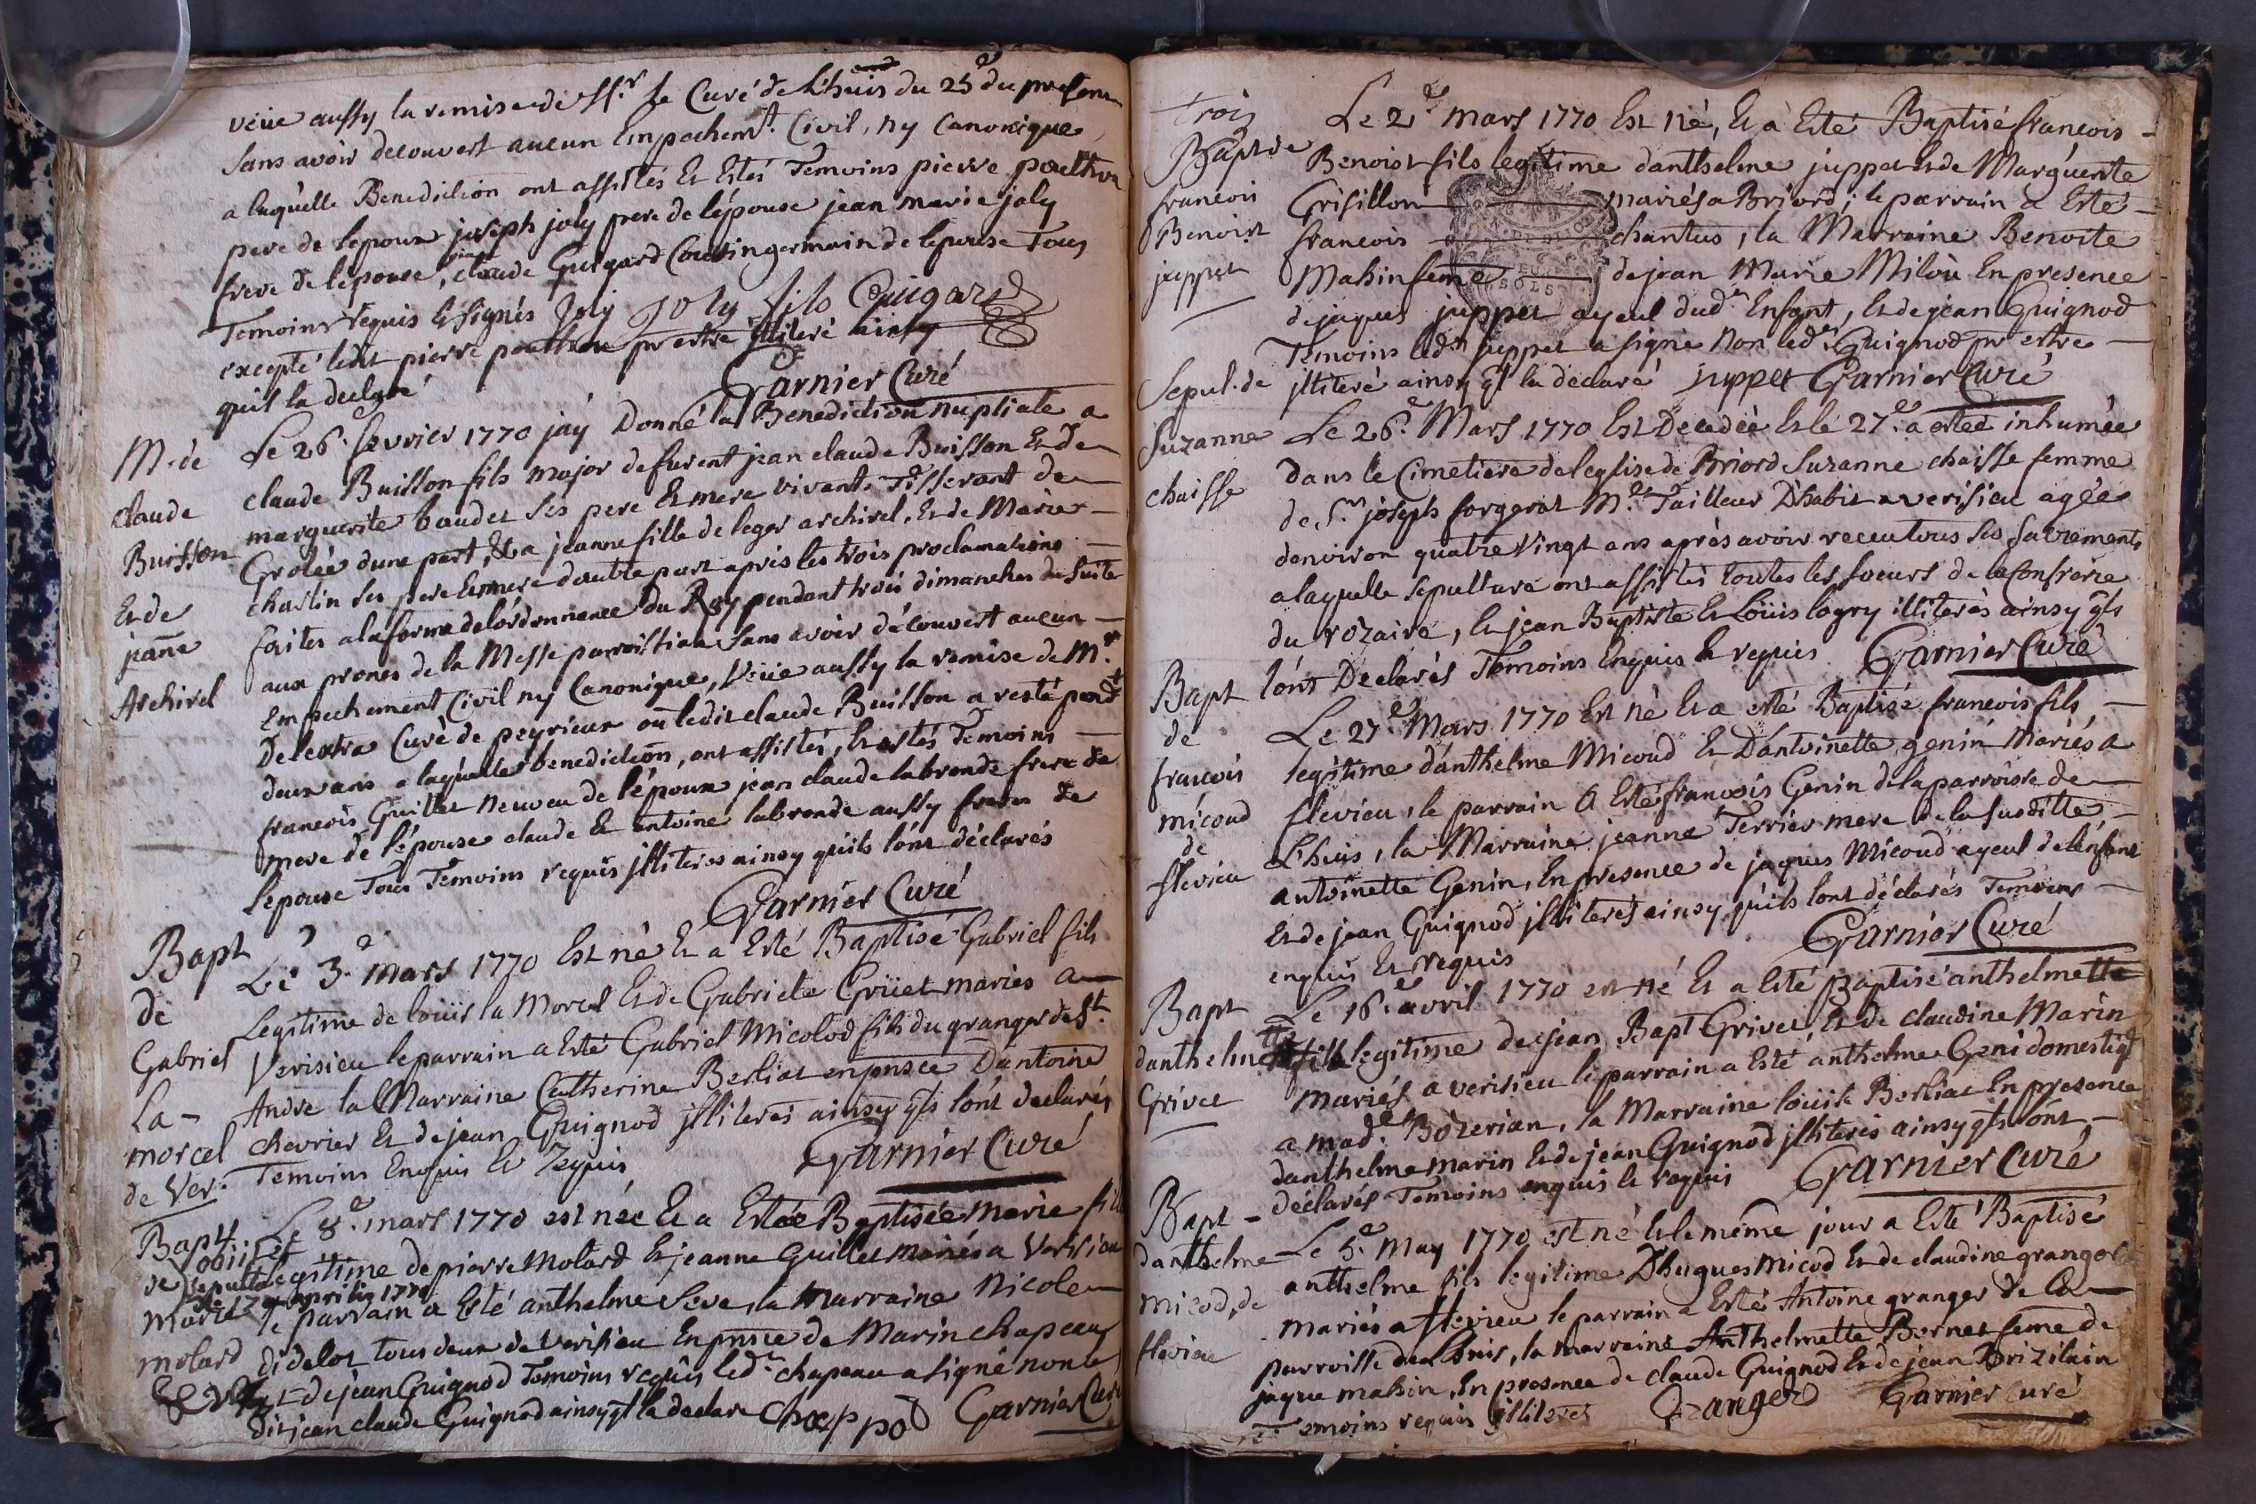 veüe aussy la remise de Sr. le Curé de L'huis du 25e du present
sans avoir decouvert aucun Empechemt. Civil, ny canonique
a laquelle Benediction ont assistés Et Estés Temoins pierre
pere de lepoux joseph joly pere de lépouse jean marie joly
frere de lepouse, claude Guigard Cousin germain de lepouse Tous
Temoins requis & signés Joly Joly fils Guigard
excepté ledit pierre pour estre illiteré ainsy
quil la declaré Garnier Curé
M. de
claude
Buisson
Et de
jeañe
Archirel
Le 26. fevrier 1770 jay Donné la Benediction nuptiale a
claude Buisson fils major de furent jean claude Buisson Et de
marguerite baudet ses pere Et mere vivants Tisserant de
Grolée dune part, & a jeanne fille de leger archirel, Et de Marie
charlin ses pere Et mere dautre part apres les trois proclamations
faites a la forme de lórdonnance du Roy pendant trois dimanches de suite
aux prones de la Messe parroissiale sans avoir découvert aucun
Empechement Civil ny Canonique, Veüe aussy la remise de Mr.
Delextra Curé de peyrieux ou ledit claude Buisson a resté pendt
deux ans a laquelle benediction, ont assistés, Et estés Temoins
francois Guillet neuveu de l'époux jean claude labronde frere de
mere de l'épouse claude Et antoine labronde aussy freres de
lepouse Tous Temoins requis illiteres ainsy quils lónt déclarés
Garnier Curé
Bapt
de
Gabriel
La-
morcel
de Ver.
Le 3.e mars 1770 Est né Et a Esté Baptisé Gabriel fils
Legitime de loüis la Morcel Et de Gabriele Grüet mariés a
Verisieu le parrain a Esté Gabriel Micolod fils du granger de St.
Andre la Marraine Catherine Berliat en pnsce Dantoine
chevrier Et de jean Guignod illiterés ainsy qls lónt declarés
Temoins Enquis Et requis Garnier Curé
Bapt.
de
marie
molard
obiit et
sepulta
die 17a aprilis 1770
Le 8.e mars 1770 est née Et a Estée Baptisée marie fille
legitime de pierre Molard Et jeanne Guillet mariés a Verisieu
le parrain a Esté anthelme Seve, la marraine Nicole
didelot tous deux de Verisieu En pnsce de Marin chapeau
Et de jean Guignod Temoins requis ledt. chapeau a signé non le
dit jean claude Guignod ainsy ql la declare chappod Garnier Curé
Trois
Bapt de
francois
Benoist
juppet
Le 2e mars 1770 Est né, Et a Esté Baptisé francois
Benoist fils legitime danthelme juppet Et de Marguerite
Grisillon mariés a Briord; le parrain a Esté
francois chantus, la Marraine Benoite
Mahin feme de jean Marie Milou En presence
de jaques juppet ayeul dudt. Enfant, Et de jean Guignod
Temoins ledt. juppet a signé non ledt. Guignod pr estre
illiteré ainsy ql la declaré juppet Garnier Curé
Sepul. de
Suzanne
chaisse
Le 26.e Mars 1770 Est Decedée Et le 27.e a estée inhumée
dans le Cimetiere de leglise de Briord Suzanne chaisse femme
de Sr. joseph forgerot Me. Tailleur D'habit a verisieu agée
denviron quatre Vingt ans aprés avoir receu tous ses Sacrements
a laquelle sepulture ont assistés toutes les soeurs de la Confrerie
du rozaire, Et jean Baptiste Et Loüis logry illiterés ainsy qls
lónt Declarés Temoins Enquis Et requis Garnier Curé
Bapt
de
francois
micoud
de
flevieu
Le 27.e Mars 1770 Est né Et a esté Baptisé francois fils
legitime d'anthelme Micoud Et D'antoinette genin Mariés a
flevieu, le parrain a Esté francois Genin de la parroisse de
L'huis, la Marraine jeanne Terrier mere de la susditte
antoinette Genin, En presence de jaques Micoud ayeul de lénfant
Et de jean Guignod illiterés ainsy quils lont déclarés Temoins
enquis Et requis Garnier Curé
Bapt
danthelmette
Grivet
Le 16.e avril 1770 est né Et a Esté Baptisé anthelmette
fille legitime de jean Bapt Grivet, Et de claudine Marin
Mariés a verisieu le parrain a Esté anthelme Geni domestiqe
a made. Bozerian, la Marraine loüise Berliat En presence
danthelme marin Et de jean Guignod illiterés ainsy qls lónt
déclarés Temoins enquis Et requis Garnier Curé
Bapt
danthelme
micod, de
flevieu
Le 5.e May 1770 est né Et le même jour a Esté Baptisé
anthelme fils legitime D'hugues Micod Et de claudine granger
mariés a flevieu le parrain a Esté Antoine granger de la
parroisse de Lhuis, la marraine Anthelmette Bornet feme de
jaque mahin, En presence de claude Guignod Et de jean Brizilain
Temoins requis illiterés Granger Garnier Curé